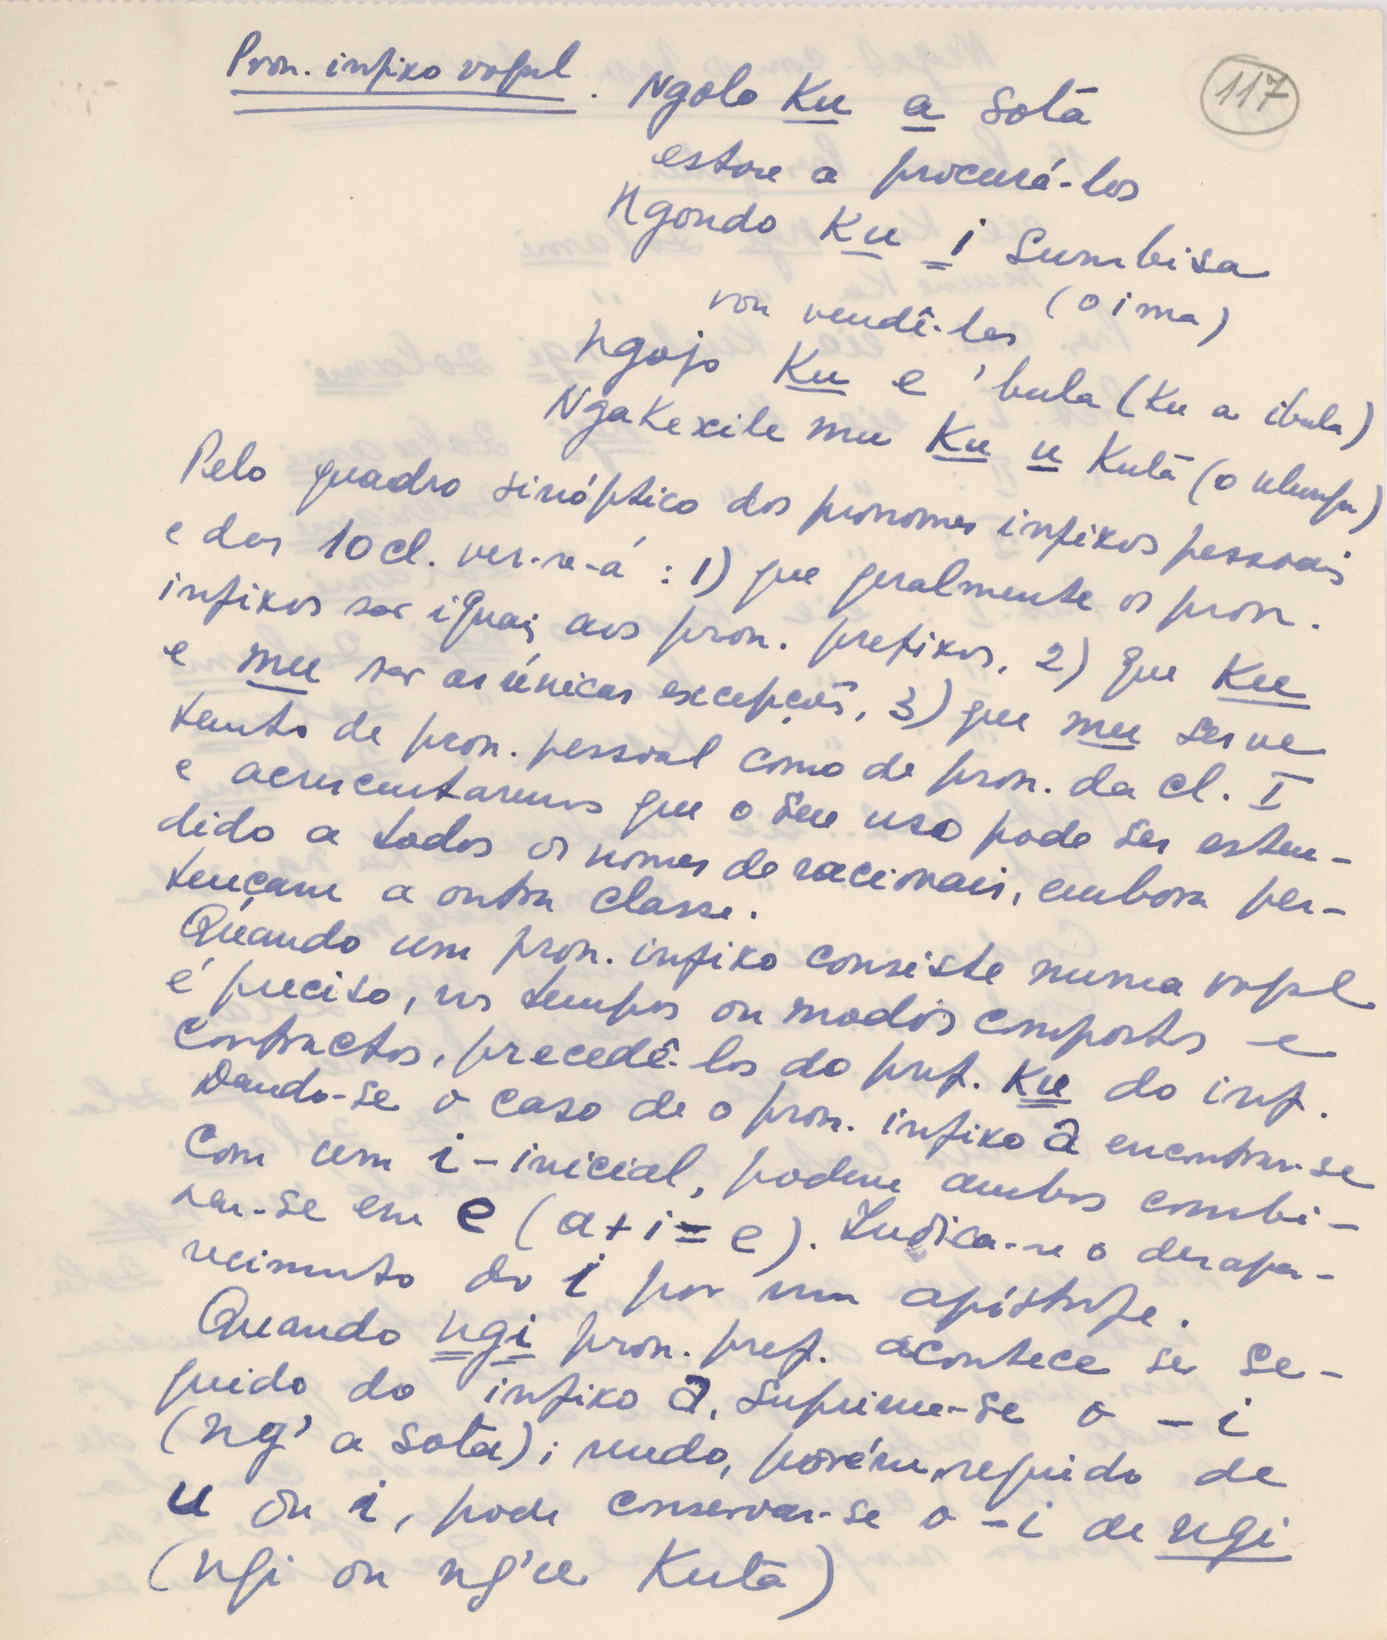 117
Pron. infixo vogal. Ngolo Ku a sotā
estou a procurá-los
Ngondo Ku i sumbisa
vou vendê-las (o ima)
Ngojo Ku e 'bula (Ku a ibula)
NgaKexile mu Ku u Kutā (o
Pelo quadro sinóptico dos pronomes infixos pessoais
e das 10 cl. ver-se-á : 1) que geralmente os pron.
infixos são iguais aos pron. prefixos, 2) que Ku
e mu são as únicas excepções, 3) que mu serve
tanto de pron. pessoal como de pron. da cl. I
e acrescentaremos que o seu uso pode ser esten-
dido a todos os nomes de racionais, embora per-
tençam a outra classe.
Quando um pron. infixo consiste numa vogal
é preciso, nos tempos ou modos compostos e
contractos, precedê-los do pref. Ku do inf.
Dando-se o caso de o pron. infixo a encontrar-se
com um i-inicial, podem ambos combi-
nar-se em e (a+i=e). Indica-se o desapa-
recimento do i por um apóstrofe.
Quando ngi pron. pref. acontece ser se-
guido do infixo a, suprime-se o -i
(ng' a sota); sendo, porém, seguido de
u ou i, pode conservar-se o -i de ngi
(ngi ou ng'u Kutā)